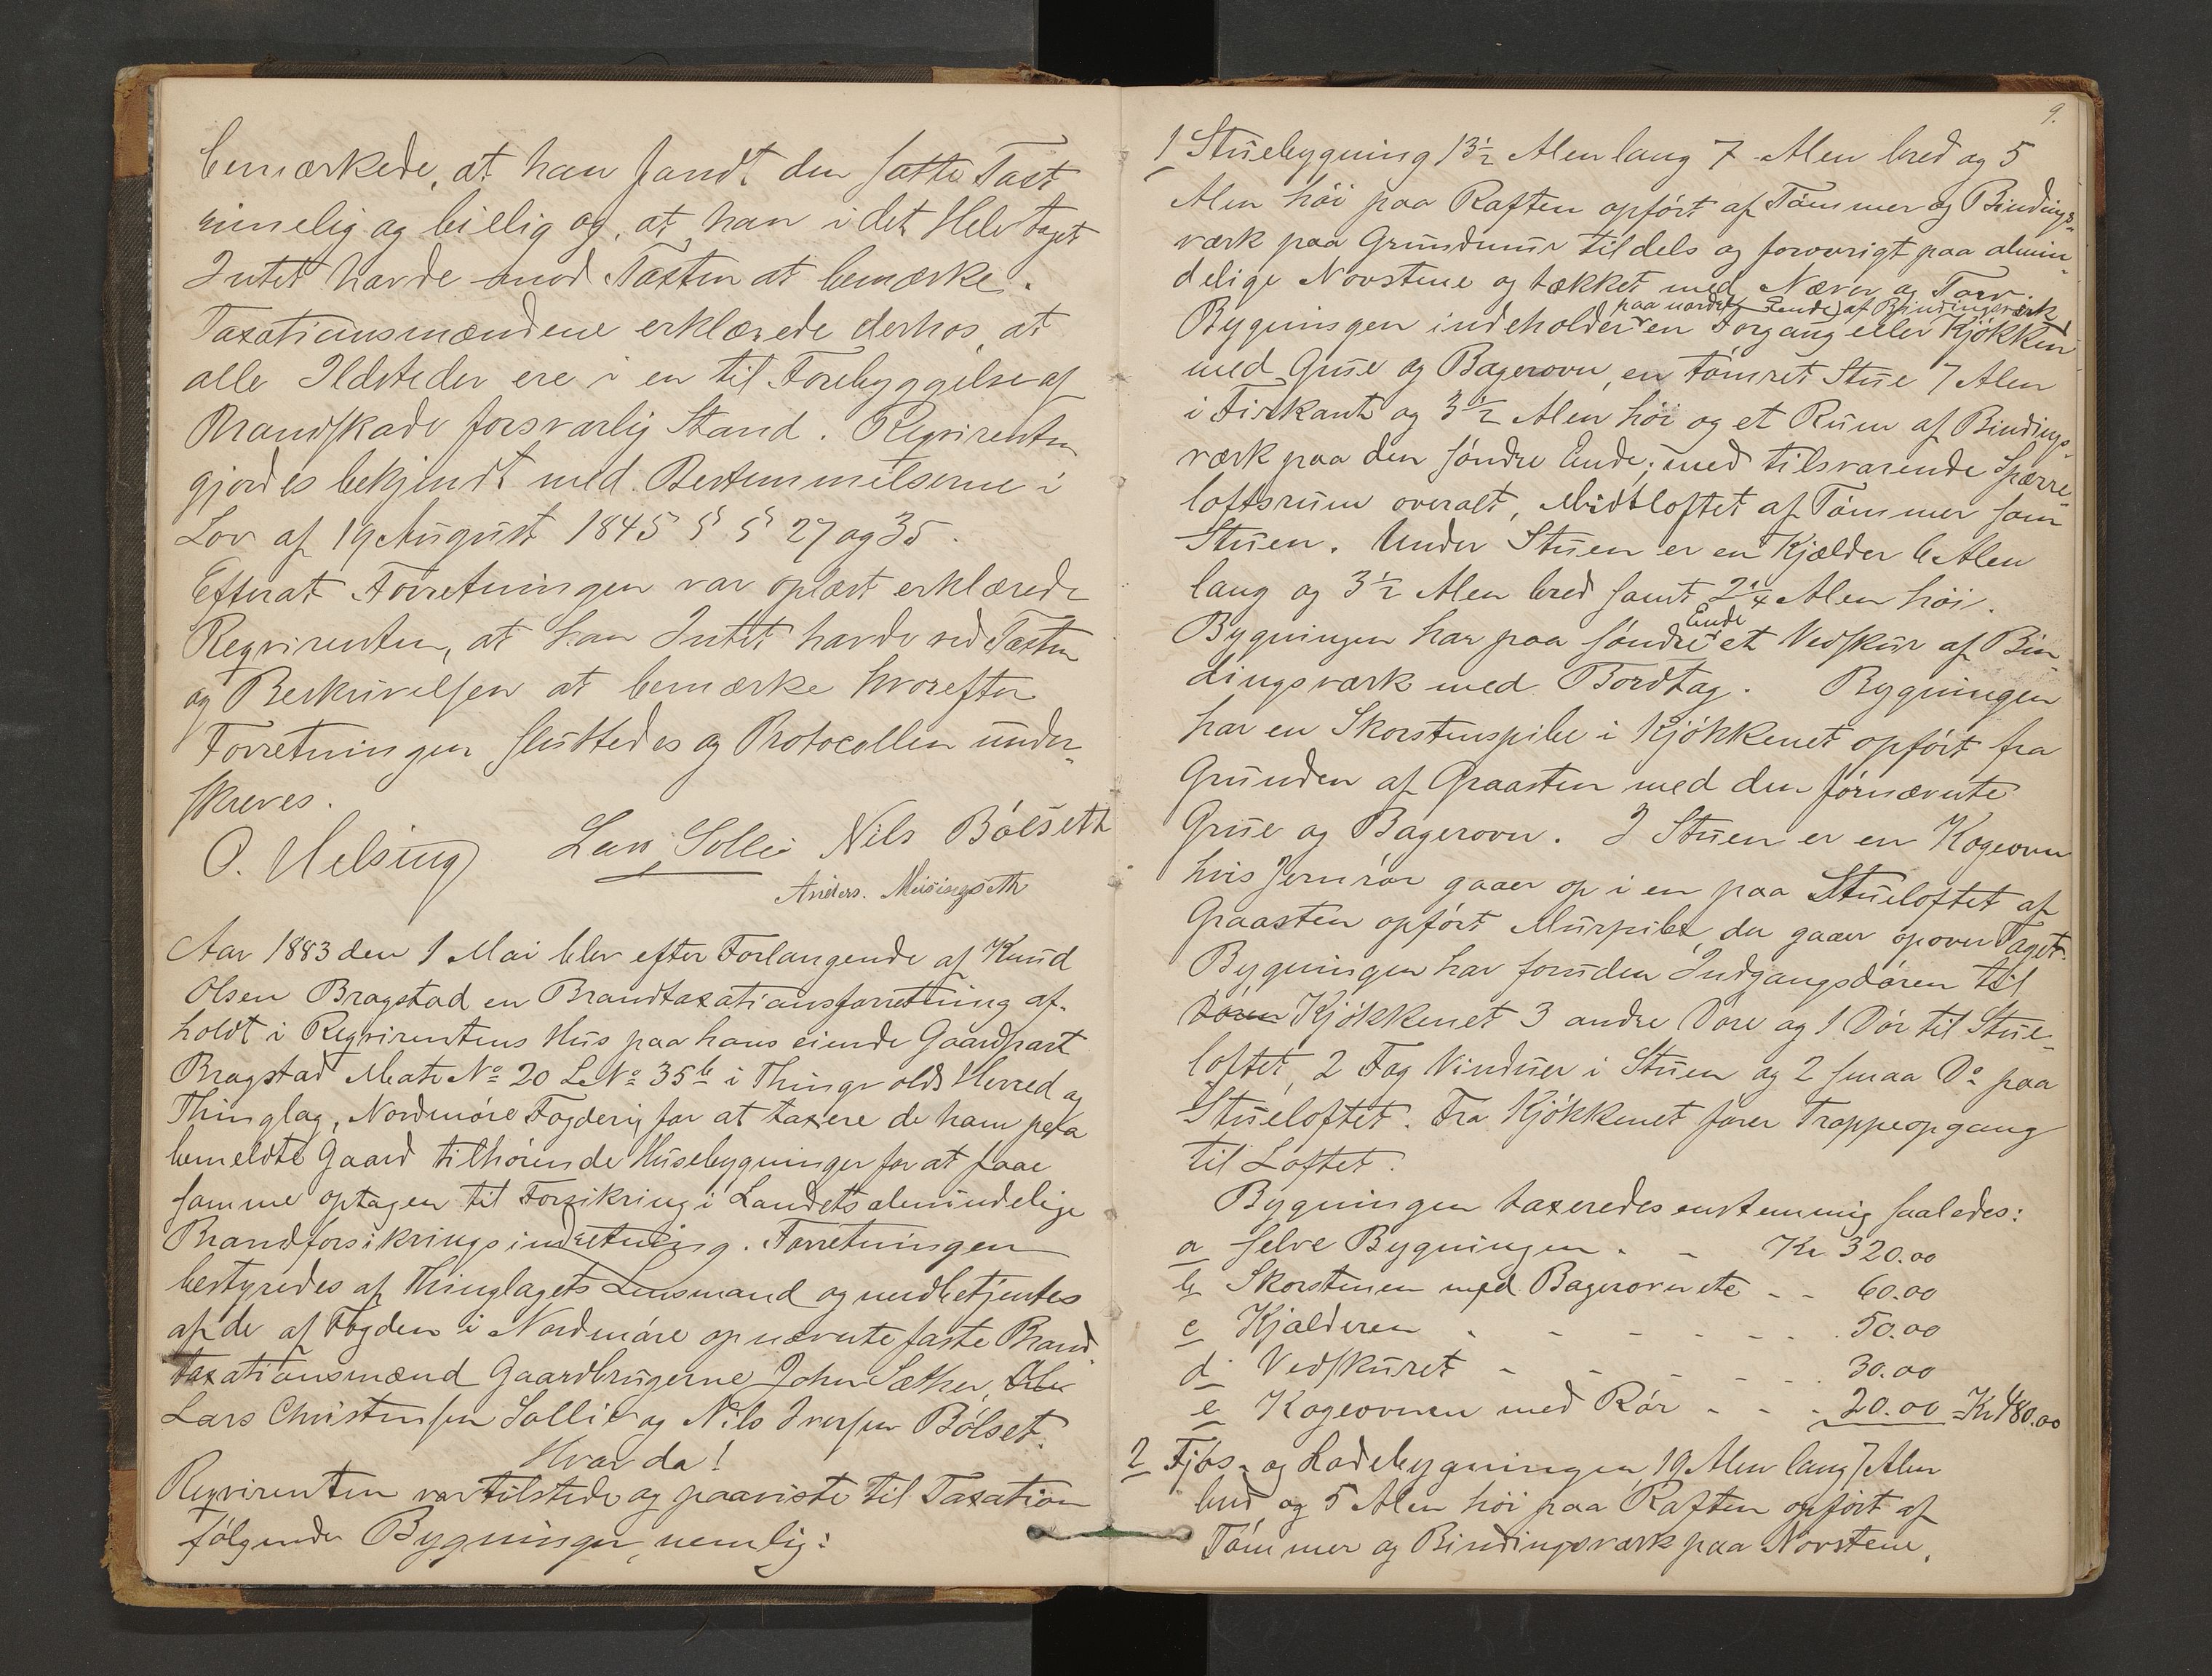 bemærkede, at han fandt den satte Taxt
rimelig og billig og, at han i det Hele taget
Intet havde mod Taxten at bemærke.
Taxationsmændene erklærede derhos, at
alle Ildsteder ere i en til Forebyggelse af
Brandskade forsvarlig Stand. Reqvirenten
gjordes bekjendt med Bestemmelserne i
Lov af 19 August 1845 § § 27 og 35.
Efterat Forretningen var oplæst erklærede
Reqvirenten, at han Intet havde ved Taxten
og Beskrivelsen at bemærke hvorefter
Forretningen sluttedes og Protocollen under-
skreves.
O. Helsing Lars Sollie Nils Bölseth
Anders. Meisingseth
Aar 1883 den 1 Mai blev efter Forlangende af Knud
Olsen Bragstad en Brandtaxationsforretning af-
holdt i Reqvirentens Hus paa hans eiende Gaardpart
Bragstad Matr No 20 L No 35b i Thingvolds Herred og
Thinglag, Nordmöre Fogderi, for at taxere de ham paa
bemeldte Gaard tilhörende Husebygninger for at faae
samme optagen til Forsikring i Landets almindelige
Brandforsikringsindretning. Forretningen
bestyredes af Thinglagets Lensmand og medbetjentes
af de af Fogden i Nordmöre opnævnte faste Brand-
taxationsmænd Gaardbrugerne John Sæther, Ole
Lars Christensen Sollie og Nils Iversen Bölset.
Hvor da!
Reqvirenten var tilstede og paaviste til Taxation
fölgende Bygninger, nemlig:
9.
1 Stuebygning 13 1/2 Alen lang 7 Alen bred og 5
Alen höi paa Raften opfört af Tömmer og Bindings-
værk paa Grundmur tildels og forövrigt paa almin-
delige Novstene og tækket med Næver og Torv.
paa nordre Ende af Bindingsværk
Bygningen indeholder en Forgang eller Kjökken
med Grue og Bagerovn, en tömret Stue 7 Alen
i Firkant og 3 1/2 Alen höi og et Rum af Bindings-
værk paa den söndre Ende; med tilsvarende Sperre-
loftsrum overalt, Midtloftet af Tömmer som
Stuen. Under Stuen er en Kjælder 6 Alen
lang og 3 1/2 Alen bred samt 2 1/4 Alen höi.
Ende
Bygningen har paa söndre et Vedskur af Bin-
dingsværk med Bordtag. Bygningen
har en Skorstenspibe i Kjökkenet opfört fra
Grunden af Graasten med den förnævnte
Grue og Bagerovn. I Stuen er en Kogeovn
hvis Jernrör gaaer op i en paa Stueloftet af
Graasten opfört Murpibe, der gaaer op over Taget.
Bygningen har foruden Indgangsdören til
Dören Kjökkenet 3 andre Döre og 1 Dör til Stue-
loftet, 2 Fag Vinduer i Stuen og 2 smaa Do paa
Stueloftet. Fra Kjökkenet förer Trappeopgang
til Loftet.
Bygningen taxeredes enstemmig saaledes:
a selve Bygningen . - Kr 320.00
b Skorstenen med Bagerovn etc - - 60.00
c Kjælderen . - - - - - . 50.00
d Vedskuret - - - - - . 30.00
e Kogeovnen med Rör - - - 20.00 = Kr 480.00
2 Fjös- og Ladebygningen 19 Alen lang 7 Alen
bred og 5 Alen höi paa Raften opfört af
Tömmer og Bindingsværk paa Novstene,